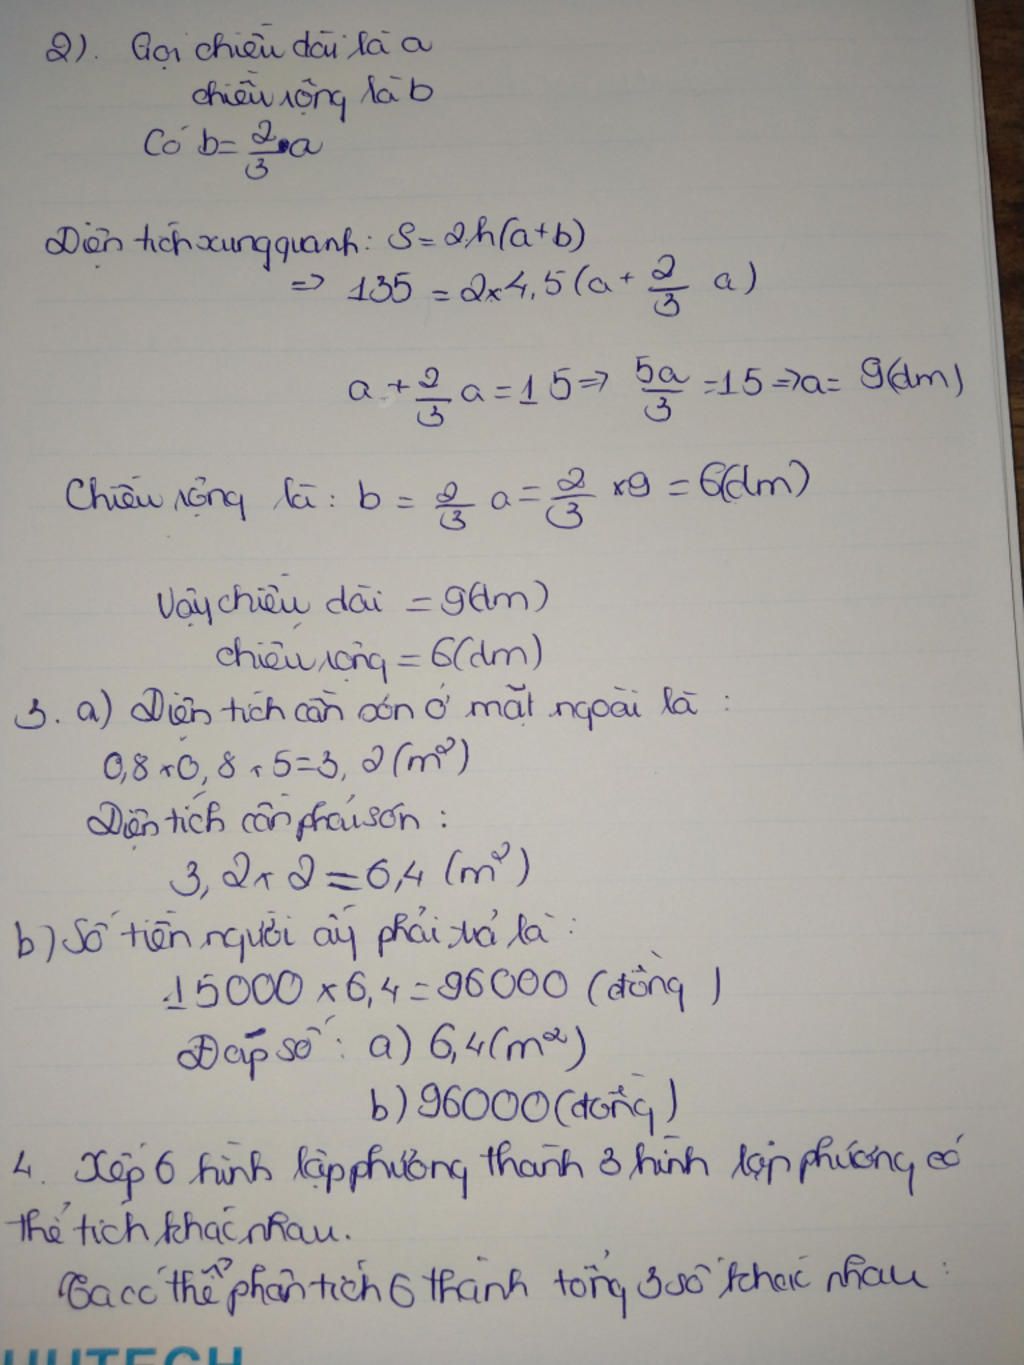 2). Gọi chiều dài là a
chiều rộng là b
Có b = 2/3 . a
Diện tích xung quanh: S = 2.h(a+b)
=> 135 = 2 x 4,5 (a + 2/3 a)
a + 2/3 a = 15 => 5a/3 = 15 => a = 9(dm)
Chiều rộng là: b = 2/3 a = 2/3 x 9 = 6(dm)
Vậy chiều dài = 9(dm)
chiều rộng = 6(dm)
3. a) Diện tích cần sơn ở mặt ngoài là :
0,8 x 0,8 x 5 = 3,2 (m²)
Diện tích cần phải sơn :
3,2 x 2 = 6,4 (m²)
b) Số tiền người ấy phải trả là :
15000 x 6,4 = 96000 (đồng)
Đáp số : a) 6,4 (m²)
b) 96000 (đồng)
4. Xếp 6 hình lập phương thành 3 hình lập phương có
thể tích khác nhau.
Ta có thể phân tích 6 thành tổng 3 số khác nhau :
HUTECH